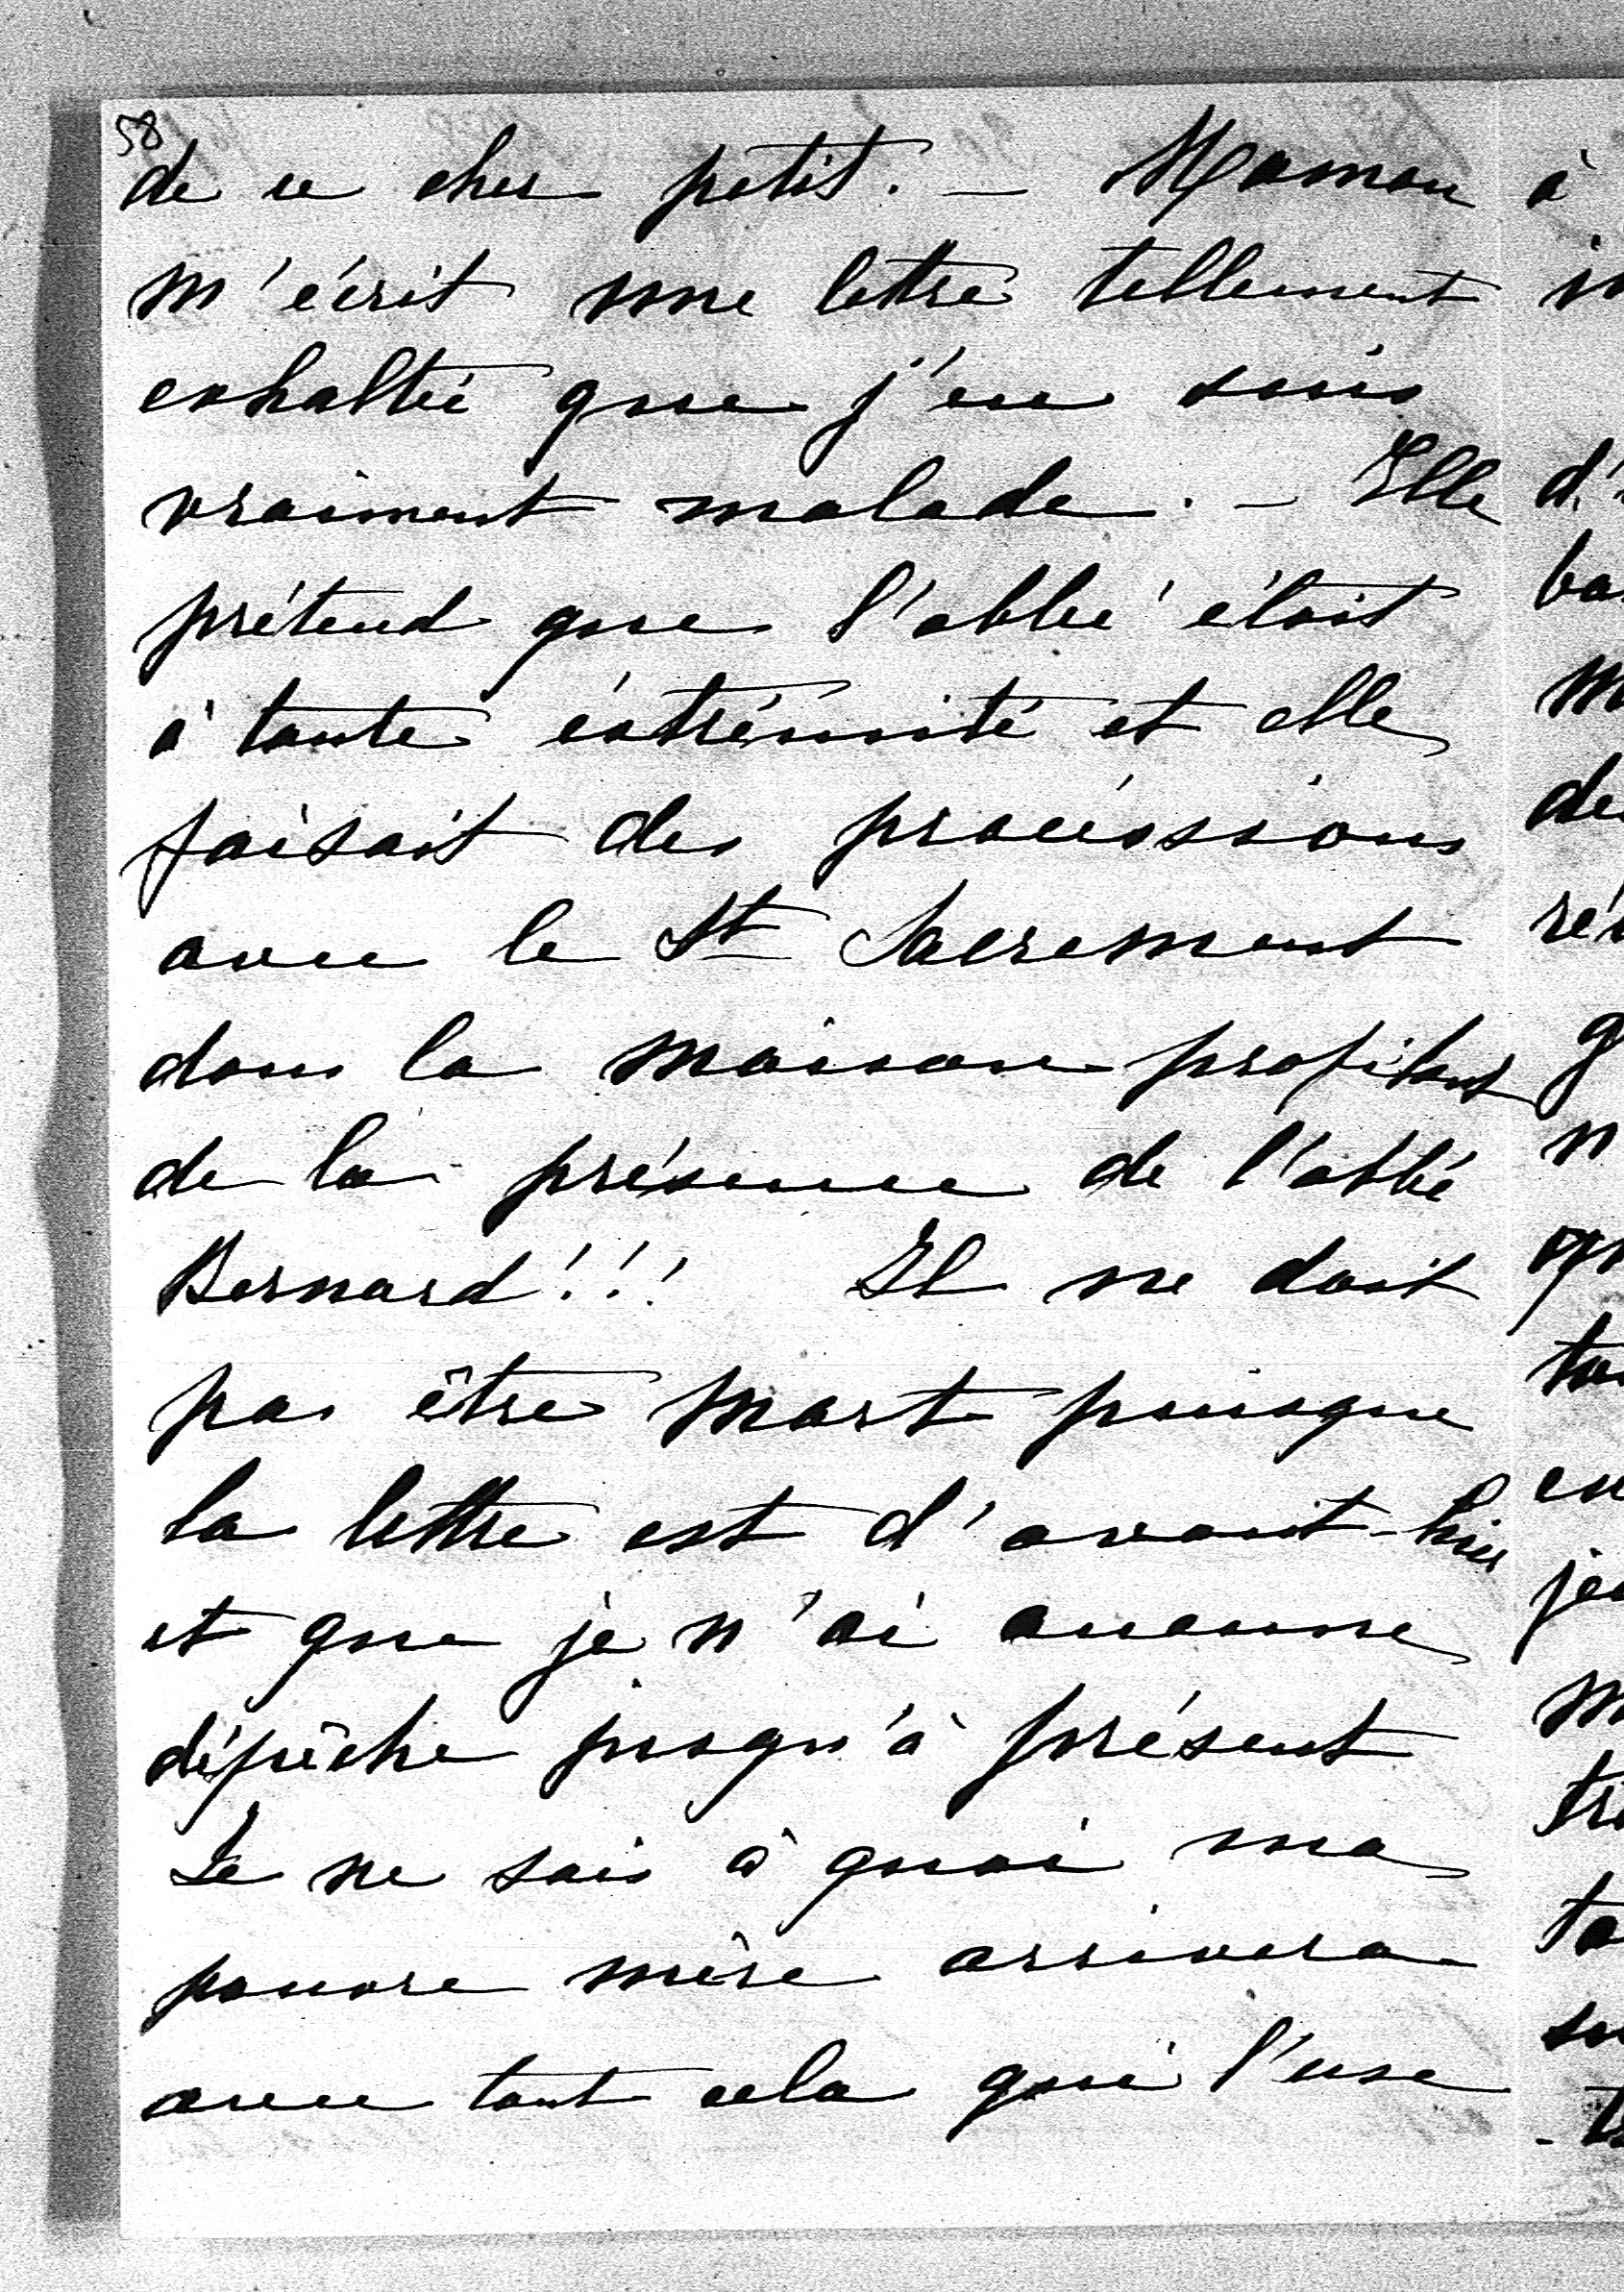 58
de ce cher petit. — Maman
m'écrit une lettre tellement
exhaltée que j'en suis
vraiment malade. — Elle
prétend que l'abbé était
à toute éxtrémité et elle
faisait des processions
avec le St Sacrement
dans la maison profitant
de la présence de l'abbé
Bernard!!! Il ne doit
pas être mort puisque
la lettre est d'avant-hier
et que je n'ai aucune
dépêche jusqu'à présent
Je ne sais à quoi ma
pauvre mère arrivera
avec tout cela qui l'use